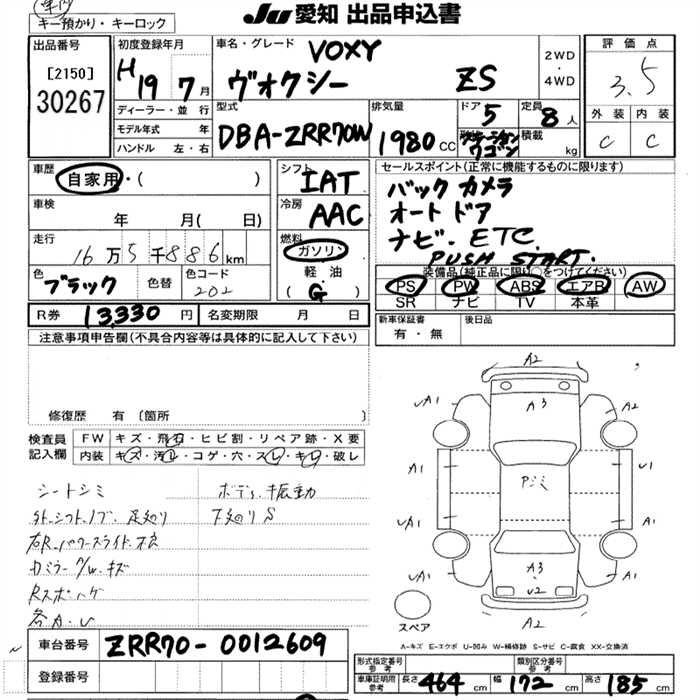 JU 愛知 出品申込書
キー預かり・キーロック
出品番号
[2150]
30267
初度登録年月
H 19 7月
ディーラー・並行
モデル年式 年
ハンドル 左・右
車名・グレード VOXY
ヴォクシー ZS
2WD
・
4WD
型式
DBA-ZRR70W
排気量
1980 cc
ドア
5
定員
8人
積載
kg
ワゴン
評価点
3.5
外装 内装
C C
車歴
自家用・( )
車検
年 月(日)
走行
16万5千886km
色
ブラック
色替
色コード
202
シフト
IAT
冷房
AAC
燃料
ガソリン
軽・油
( G )
セールスポイント(正常に機能するものに限ります)
バックカメラ
オートドア
ナビ. ETC.
PUSH START.
装備品(純正品に限り○をつけてください)
PS PW ABS エアB AW
SR ナビ TV 本革
R券 13,330円
名変期限 月 日
新車保証書
有・無
後日品
注意事項申告欄(不具合内容等は具体的に記入して下さい)
修復歴 有 [箇所 ]
検査員
記入欄
FW キズ・飛石・ヒビ割・リペア跡・X要
内装 キズ・汚れ・コゲ・穴・スレ・キレ・破レ
シートシミ
ボディ振動
下廻りS
Rスポハゲ
各A.U
A2
A3
UA1
A2
A1
U1
Pシミ
UA1
A1
UA1
A3
U2
A1
A2
スペア
A-キズ E-エクボ U-凹み W-補修跡 S-サビ C-腐食 XX-交換済
車台番号 ZRR70-0012609
登録番号
形式指定番号
参考
類別区分番号
参考
車庫証明用
参考
長さ 464 cm 幅 172 cm 高さ 185 cm